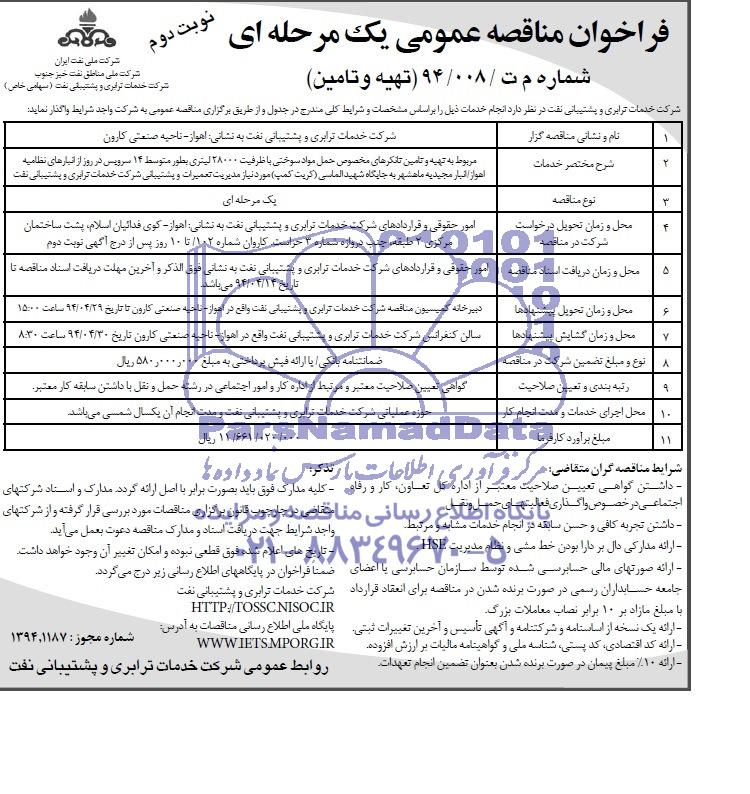 فراخوان مناقصه عمومی یک مرحله ای
نوبت دوم
شماره م ت /۹۴/۰۰۸ (تهیه و تامین)
شرکت ملی نفت ایران
شرکت ملی مناطق نفت خیز جنوب
شرکت خدمات ترابری و پشتیبانی نفت (سهامی خاص)
شرکت خدمات ترابری و پشتیبانی نفت در نظر دارد انجام خدمات ذیل را براساس مشخصات و شرایط کلی مندرج در جدول و از طریق برگزاری مناقصه عمومی به شرکت واجد شرایط واگذار نماید:
۱ نام و نشانی مناقصه گزار شرکت خدمات ترابری و پشتیبانی نفت به نشانی: اهواز- ناحیه صنعتی کارون
۲ شرح مختصر خدمات مربوط به تهیه و تامین تانکرهای مخصوص حمل مواد سوختی با ظرفیت ۲۸۰۰۰ لیتری بطور متوسط ۱۴ سرویس در روز از انبارهای نظامیه
اهواز/انبار مجیدیه ماهشهر به جایگاه شهید الماسی (کریت کمپ) مورد نیاز مدیریت تعمیرات و پشتیبانی شرکت خدمات ترابری و پشتیبانی نفت
۳ نوع مناقصه یک مرحله ای
۴ محل و زمان تحویل درخواست شرکت در مناقصه امور حقوقی و قراردادهای شرکت خدمات ترابری و پشتیبانی نفت به نشانی: اهواز- کوی فدائیان اسلام، پشت ساختمان
مرکزی ۲ طبقه، جنب دروازه شماره ۳ حراست، کاروان شماره ۱۰۲/ تا ۱۰ روز پس از درج آگهی نوبت دوم
۵ محل و زمان دریافت اسناد مناقصه امور حقوقی و قراردادهای شرکت خدمات ترابری و پشتیبانی نفت به نشانی فوق الذکر و آخرین مهلت دریافت اسناد مناقصه تا
تاریخ ۹۴/۰۴/۱۴ می‌باشد.
۶ محل و زمان تحویل پیشنهادها دبیرخانه کمیسیون مناقصه شرکت خدمات ترابری و پشتیبانی نفت واقع در اهواز- ناحیه صنعتی کارون تا تاریخ ۹۴/۰۴/۲۹ ساعت ۱۵:۰۰
۷ محل و زمان گشایش پیشنهادها سالن کنفرانس شرکت خدمات ترابری و پشتیبانی نفت واقع در اهواز- ناحیه صنعتی کارون تاریخ ۹۴/۰۴/۳۰ ساعت ۸:۳۰
۸ نوع و مبلغ تضمین شرکت در مناقصه ضمانتنامه بانکی/ یا ارائه فیش پرداختی به مبلغ ۵۸۰,۰۰۰,۰۰۰ ریال
۹ رتبه بندی و تعیین صلاحیت گواهی تعیین صلاحیت معتبر و مرتبط از اداره کار و امور اجتماعی در رشته حمل و نقل با داشتن سابقه کار معتبر.
۱۰ محل اجرای خدمات و مدت انجام کار حوزه عملیاتی شرکت خدمات ترابری و پشتیبانی نفت و مدت انجام آن یکسال شمسی می‌باشد.
۱۱ مبلغ برآورد کارفرما ۱۱/۶۶۱/۰۲۰/۰۰۰ ریال
شرایط مناقصه گران متقاضی:
- داشتن گواهی تعیین صلاحیت معتبر از اداره کل تعاون، کار و رفاه
اجتماعی در خصوص واگذاری فعالیتهای حمل و نقل.
- داشتن تجربه کافی و حسن سابقه در انجام خدمات مشابه و مرتبط.
- ارائه مدارکی دال بر دارا بودن خط مشی و نظام مدیریت HSE.
- ارائه صورتهای مالی حسابرسی شده توسط سازمان حسابرسی یا اعضای
جامعه حسابداران رسمی در صورت برنده شدن در مناقصه برای انعقاد قرارداد
با مبلغ مازاد بر ۱۰ برابر نصاب معاملات بزرگ.
- ارائه یک نسخه از اساسنامه و شرکتنامه و آگهی تأسیس و آخرین تغییرات ثبتی.
- ارائه کد اقتصادی، کد پستی، شناسه ملی و گواهینامه مالیات بر ارزش افزوده.
- ارائه ۱۰٪ مبلغ پیمان در صورت برنده شدن بعنوان تضمین انجام تعهدات.
تذکر:
- کلیه مدارک فوق باید بصورت برابر با اصل ارائه گردد. مدارک و اسناد شرکتهای
متقاضی در چارچوب قانون برگزاری مناقصات مورد بررسی قرار گرفته و از شرکتهای
واجد شرایط جهت دریافت اسناد و مدارک مناقصه دعوت بعمل می‌آید.
- تاریخ های اعلام شده فوق قطعی نبوده و امکان تغییر آن وجود خواهد داشت.
ضمنا فراخوان در پایگاههای اطلاع رسانی زیر درج می‌گردد.
شرکت خدمات ترابری و پشتیبانی نفت
HTTP://TOSSC.NISOC.IR
پایگاه ملی اطلاع رسانی مناقصات به آدرس:
WWW.IETS.MPORG.IR
شماره مجوز : ۱۳۹۴.۱۱۸۷
روابط عمومی شرکت خدمات ترابری و پشتیبانی نفت
ParsNamadData
مرکز فرآوری اطلاعات پارس نماد داده ها
پایگاه اطلاع رسانی مناقصه و مزایده
۰۲۱-۸۸۳۴۹۶۷۰-۵